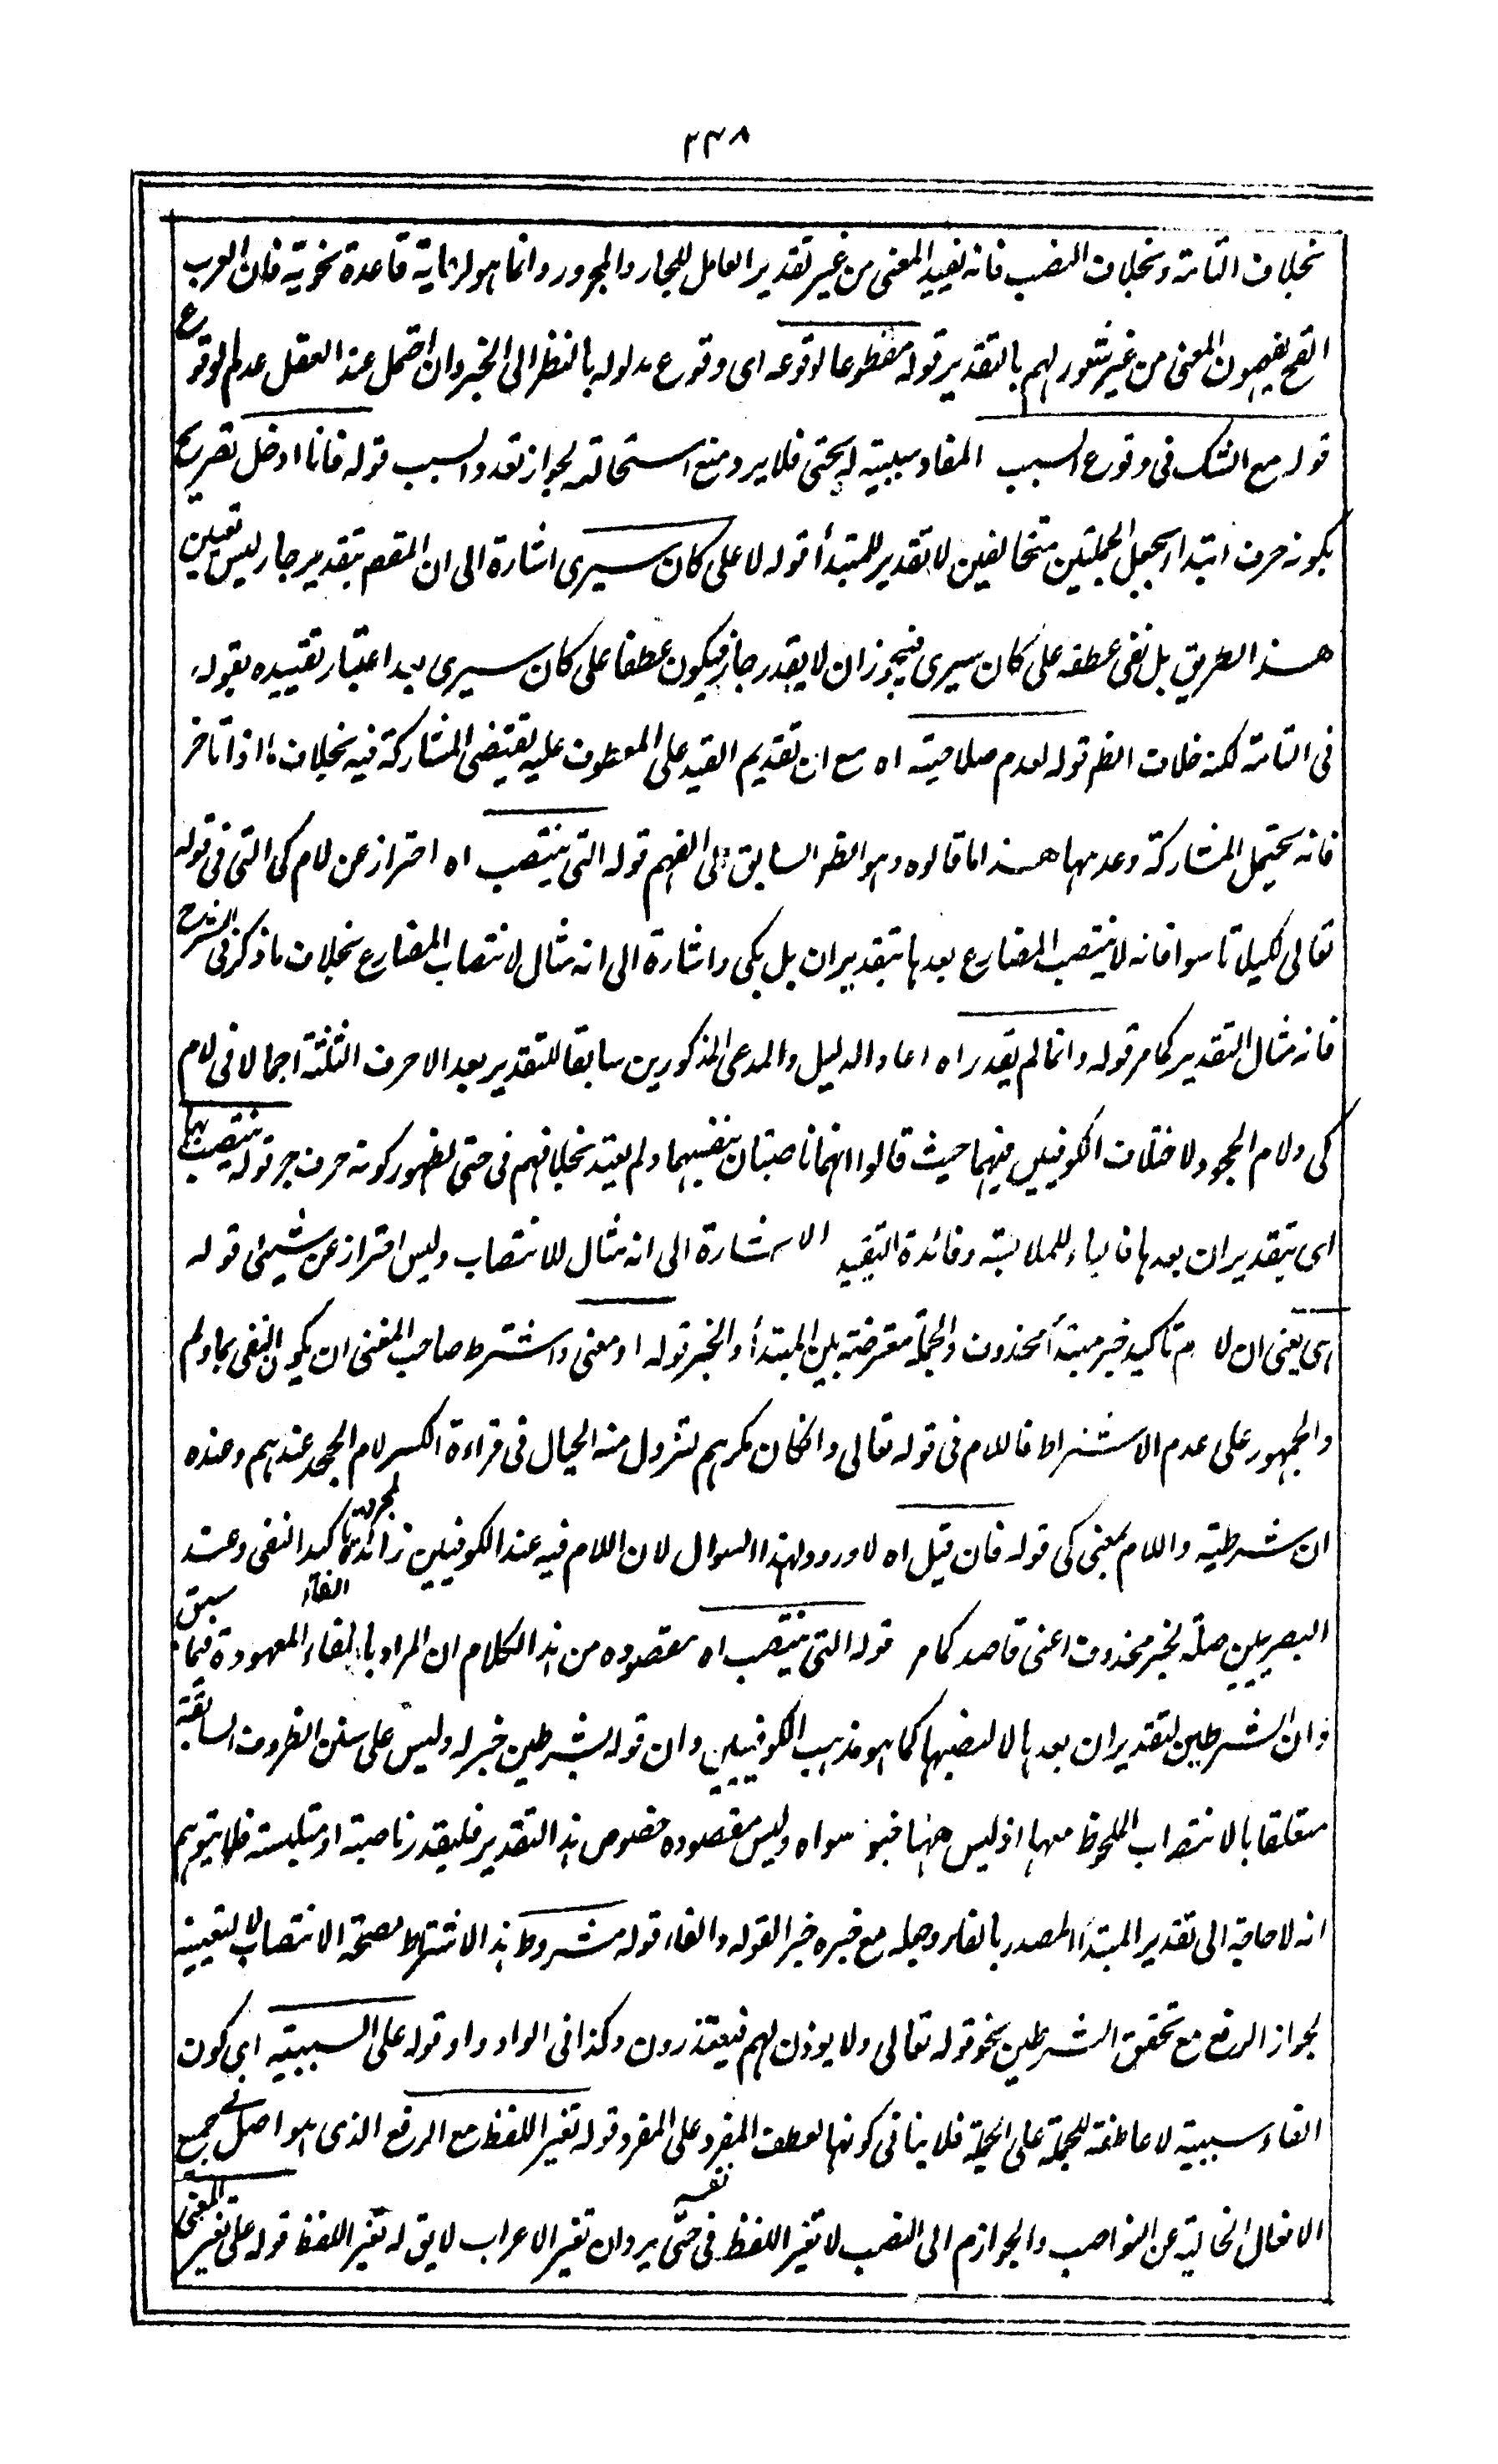 ٢٣٨
بخلاف التامة وبخلاف النصب فانه يفيد المعنى من غير تقدير العامل للجار والمجرور وانما هو لرعاية قاعدة نحوية فان العرب
القح يفهمون المعنى من غير شعور لهم بالتقدير قوله مقطوعا لوقوعه اى وقوع مدلوله بالنظر الى الخبر وان احتمل عند العقل عدم الوقوع
قوله مع الشك فى وقوع السبب المفاد سببيته له بحتى فلا يرد منع استحالته لجواز تعدد السبب قوله فانا ادخل تصريح
بكونه حرف ابتداء بجعل الجملتين متخالفين لا تقدير للمبتدأ قوله لا على كان سيرى اشارة الى ان المقصم بتقدير جار ليس تعيين
هذا الطريق بل نفى عطفه على كان سيرى فيجوز ان لا يقدر جاز فيكون عطفا على كان سيرى بعد اعتبار تقييده بقوله
فى التامة لكنه خلاف الظ قوله لعدم صلاحيته اه مع ان تقديم القيد على المعطوف عليه يقتضى المشاركة فيه بخلاف ما اذا تاخر
فانه يحتمل المشاركة وعدمها هذا ما قالوه وهو الظ السابق الى الفهم قوله التى ينتصب اه احتراز عن لام كى التى فى قوله
تعالى لكيلا تاسوا فانه لا ينتصب المضارع بعدها بتقدير ان بل بكى واشارة الى انه مثال لانتصاب المضارع بخلاف ما ذكر فى الشرح
فانه مثال التقدير كما مر قوله وانما لم يقدر اه اعاد الدليل والمدعى المذكورين سابقا للتقدير بعد الاحرف الثلثة اجمالا فى لام
كى ولام الجحود لاختلاف الكوفيين فيهما حيث قالوا انهما ناصبتان بنفسيهما ولم يعتد بخلافهم فى حتى لظهور كونه حرف جر قوله ينتصب بها
اى بتقدير ان بعدها فالباء للملابسة وفائدة التقييد الاشارة الى انه مثال للانتصاب وليس احتراز عن شيئ قوله
اى يعنى ان لام تاكيد خبر مبتدأ محذوف والجملة معترضة بين المبتدأ والخبر قوله او معنى واشترط صاحب المغنى ان يكون النفى بما ولم
والجمهور على عدم الاشتراط فاللام فى قوله تعالى وانكان مكرهم لتزول منه الجبال فى قراءة الكسر لام الجحد عندهم وعنده
ان شرطية واللام بمعنى كى قوله فان قيل اه لا ورود لهذا السوال لان اللام فيه عند الكوفيين زائدة لمجرد تاكيد النفى وعند
البصريين صلة لخبر محذوف اعنى قاصد كما مر قوله التى ينتصب اه مقصوده من هذا الكلام ان المراد بالفاء الفاء المعهودة فيما سبق
وان الشرطين لتقدير ان بعدها لا لنصبها كما هو مذهب الكوفيين وان قوله بشرطين خبر له وليس على سنن الظروف السابقة
متعلقا بالانتصاب الملحوظ معها اذ ليس ههنا خبر سواه وليس مقصوده خصوص هذا التقدير فليقدر ناصبة او متلبسة فلا يتوهم
انه لا حاجة الى تقدير المبتدأ المصدر بالفاء وجعله مع خبره خبرا لقوله والفاء قوله مشروط هذا الاشتراط لصحة الانتصاب لا لتعيينه
لجواز الرفع مع تحقق الشرطين نحو قوله تعالى ولا يوذن لهم فيعتذرون وكذا فى الواو واو قوله على السببية اى كون
الفاء سببية لا عاطفة للجملة على الجملة فلا ينافى كونها لعطف المفرد على المفرد قوله تغير اللفظ مع الرفع الذى هو اصل فى جميع
الافعال الخالية عن النواصب والجوازم الى النصب لا تغير اللفظ فى نفسه حتى يرد ان تغير الاعراب لا يق له تغير اللفظ قوله على تغير المعنى